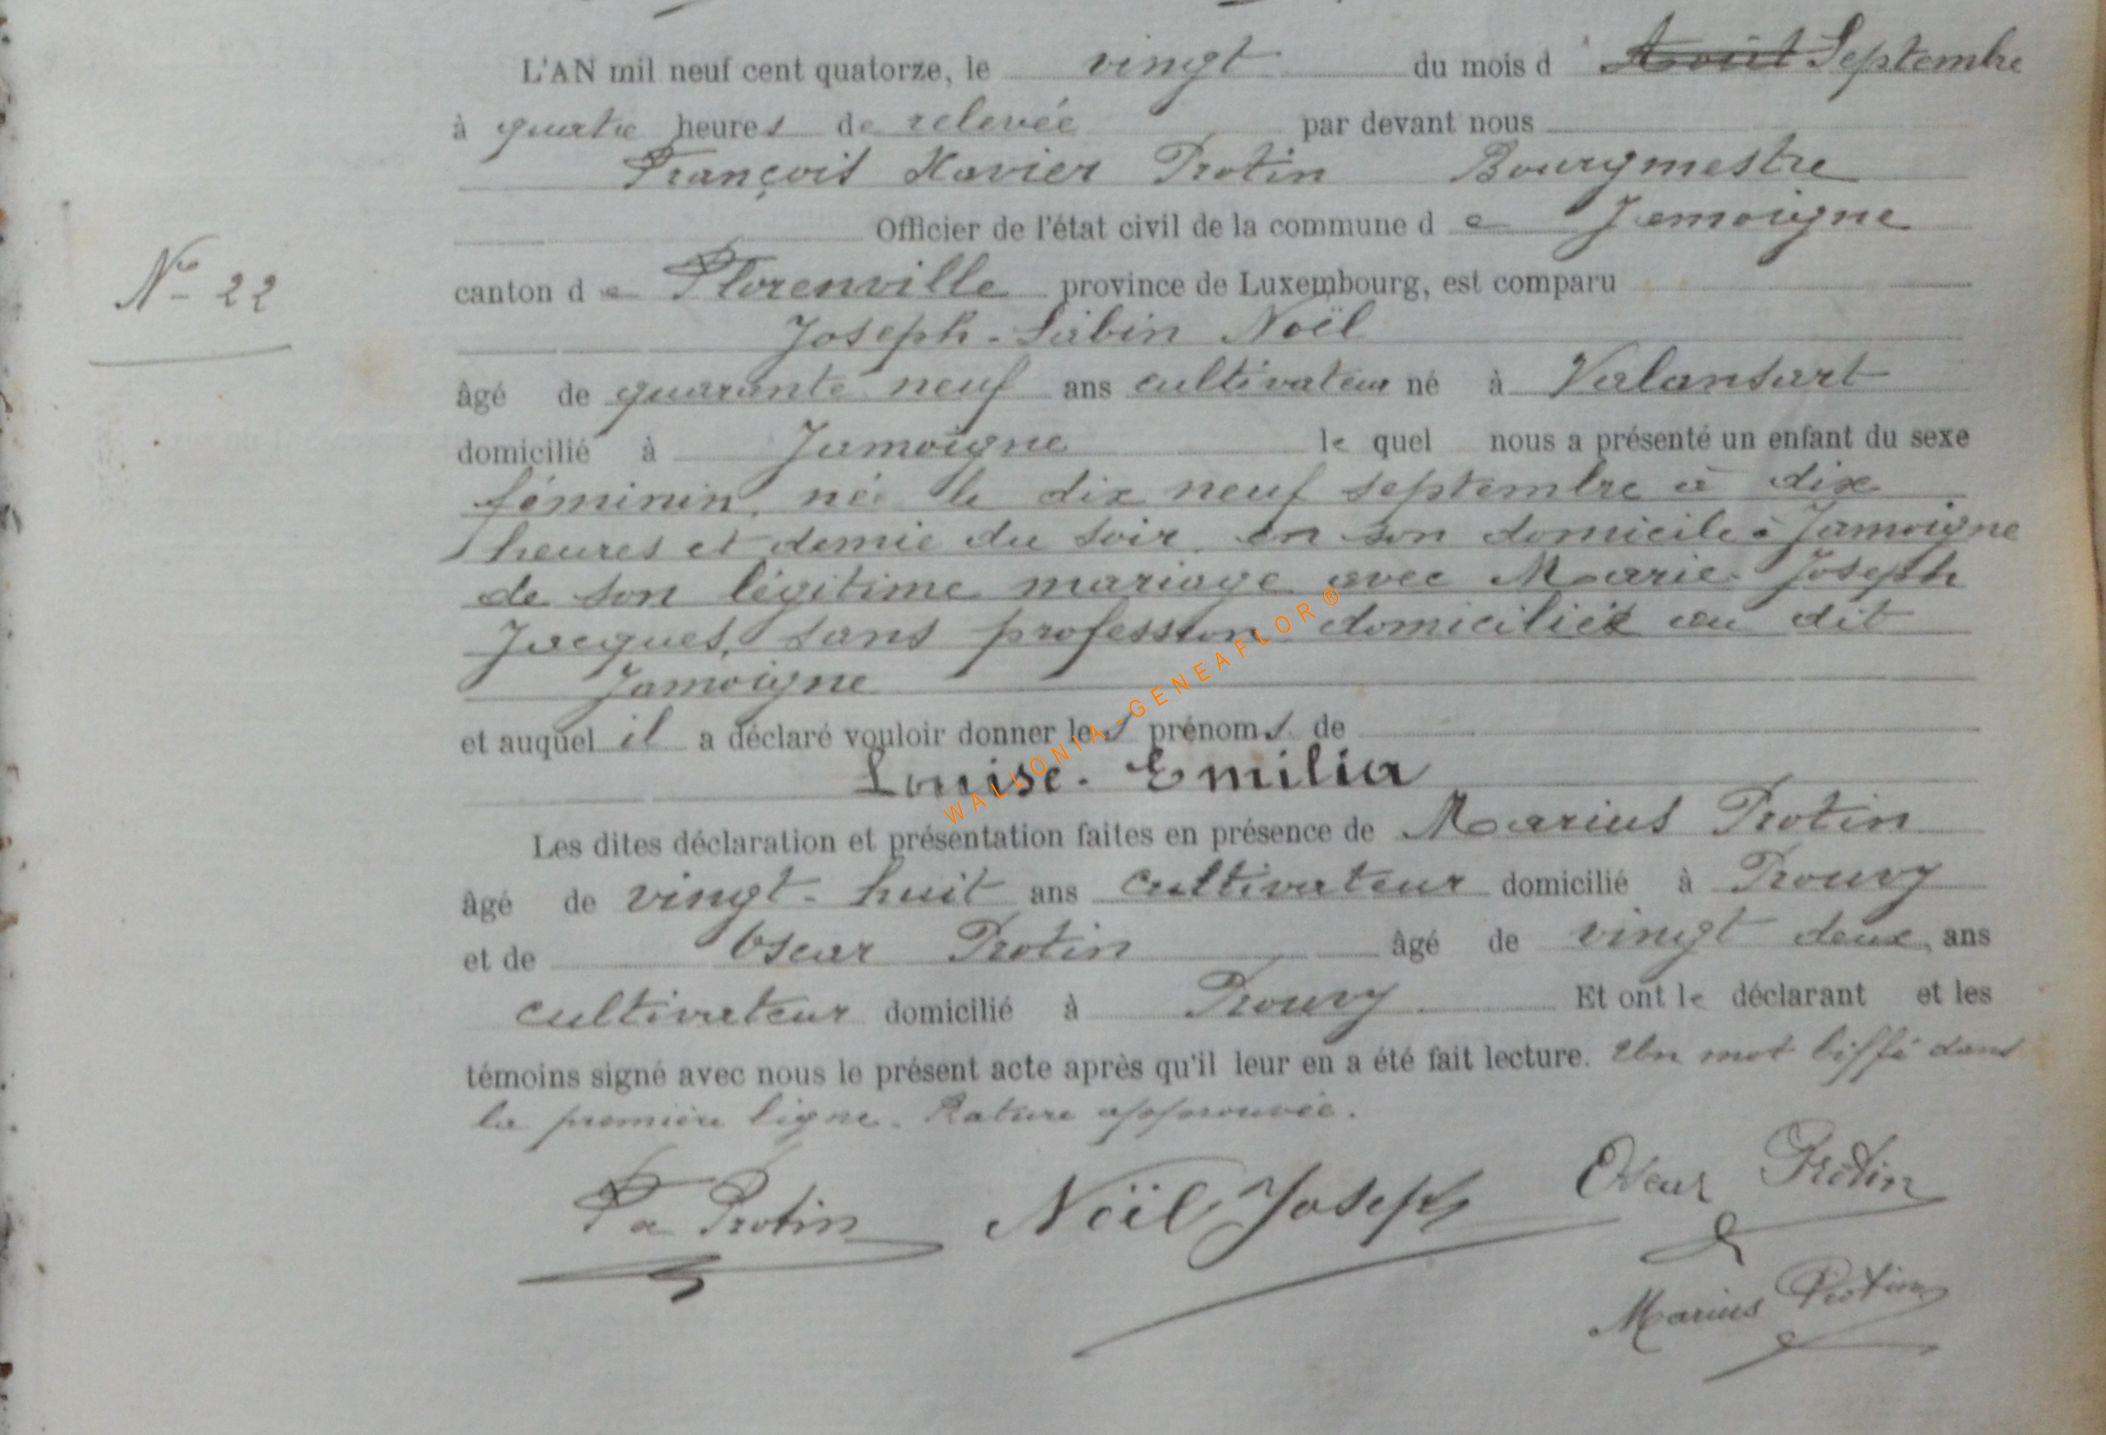 L'AN mil neuf cent quatorze, le vingt du mois d Août Septembre
à quatre heures de relevée par devant nous
François Xavier Protin Bourgmestre
Officier de l'état civil de la commune d e Jamoigne
N° 22
canton d e Florenville province de Luxembourg, est comparu
Joseph-Sabin Noël
âgé de quarante neuf ans cultivateur né à Valansart
domicilié à Jamoigne le quel nous a présenté un enfant du sexe
féminin, né le dix neuf septembre à dix
heures et demie du soir, en son domicile à Jamoigne
de son légitime mariage avec Marie-Joseph
Jacques, sans profession domiciliés au dit
Jamoigne
et auquel il a déclaré vouloir donner les prénoms de
Louise-Emilia
Les dites déclaration et présentation faites en présence de Marius Protin
âgé de vingt-huit ans cultivateur domicilié à Prouvy
et de Oscar Protin âgé de vingt deux ans
cultivateur domicilié à Prouvy Et ont le déclarant et les
témoins signé avec nous le présent acte après qu'il leur en a été fait lecture. Un mot biffé dans
la première ligne. Rature approuvée.
Protin Noël Joseph Oscar Protin
Marius Protin
WALLONIA-GENEAFLOR®